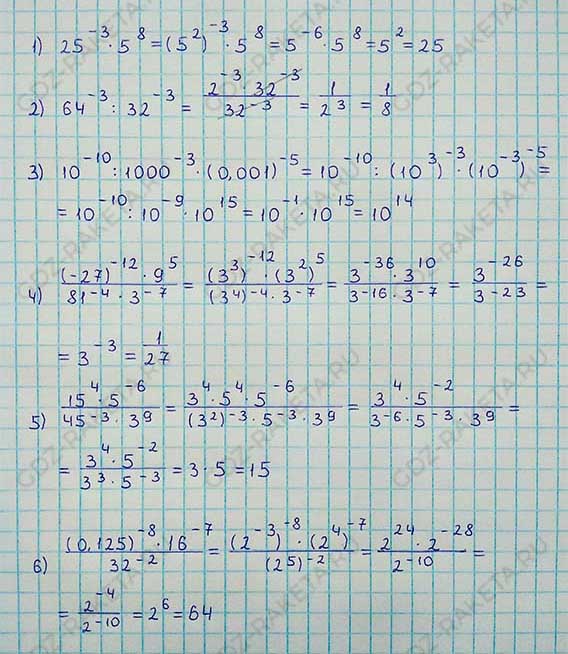 1) 25⁻³ · 5⁸ = (5²)⁻³ · 5⁸ = 5⁻⁶ · 5⁸ = 5² = 25
2) 64⁻³ : 32⁻³ = (2⁻³ · 32⁻³)/(32⁻³) = 1/2³ = 1/8
3) 10⁻¹⁰ : 1000⁻³ · (0,001)⁻⁵ = 10⁻¹⁰ : (10³)⁻³ · (10⁻³)⁻⁵ =
= 10⁻¹⁰ : 10⁻⁹ · 10¹⁵ = 10⁻¹ · 10¹⁵ = 10¹⁴
4) ((-27)⁻¹² · 9⁵)/(81⁻⁴ · 3⁻⁷) = ((3³)⁻¹² · (3²)⁵)/((3⁴)⁻⁴ · 3⁻⁷) = (3⁻³⁶ · 3¹⁰)/(3⁻¹⁶ · 3⁻⁷) = 3⁻²⁶/3⁻²³ =
= 3⁻³ = 1/27
5) (15⁴ · 5⁻⁶)/(45⁻³ · 3⁹) = (3⁴ · 5⁴ · 5⁻⁶)/((3²)⁻³ · 5⁻³ · 3⁹) = (3⁴ · 5⁻²)/(3⁻⁶ · 5⁻³ · 3⁹) =
= (3⁴ · 5⁻²)/(3³ · 5⁻³) = 3 · 5 = 15
6) ((0,125)⁻⁸ · 16⁻⁷)/(32⁻²) = ((2⁻³)⁻⁸ · (2⁴)⁻⁷)/((2⁵)⁻²) = (2²⁴ · 2⁻²⁸)/(2⁻¹⁰) =
= 2⁻⁴/2⁻¹⁰ = 2⁶ = 64
GDZ-RAKETA.RU